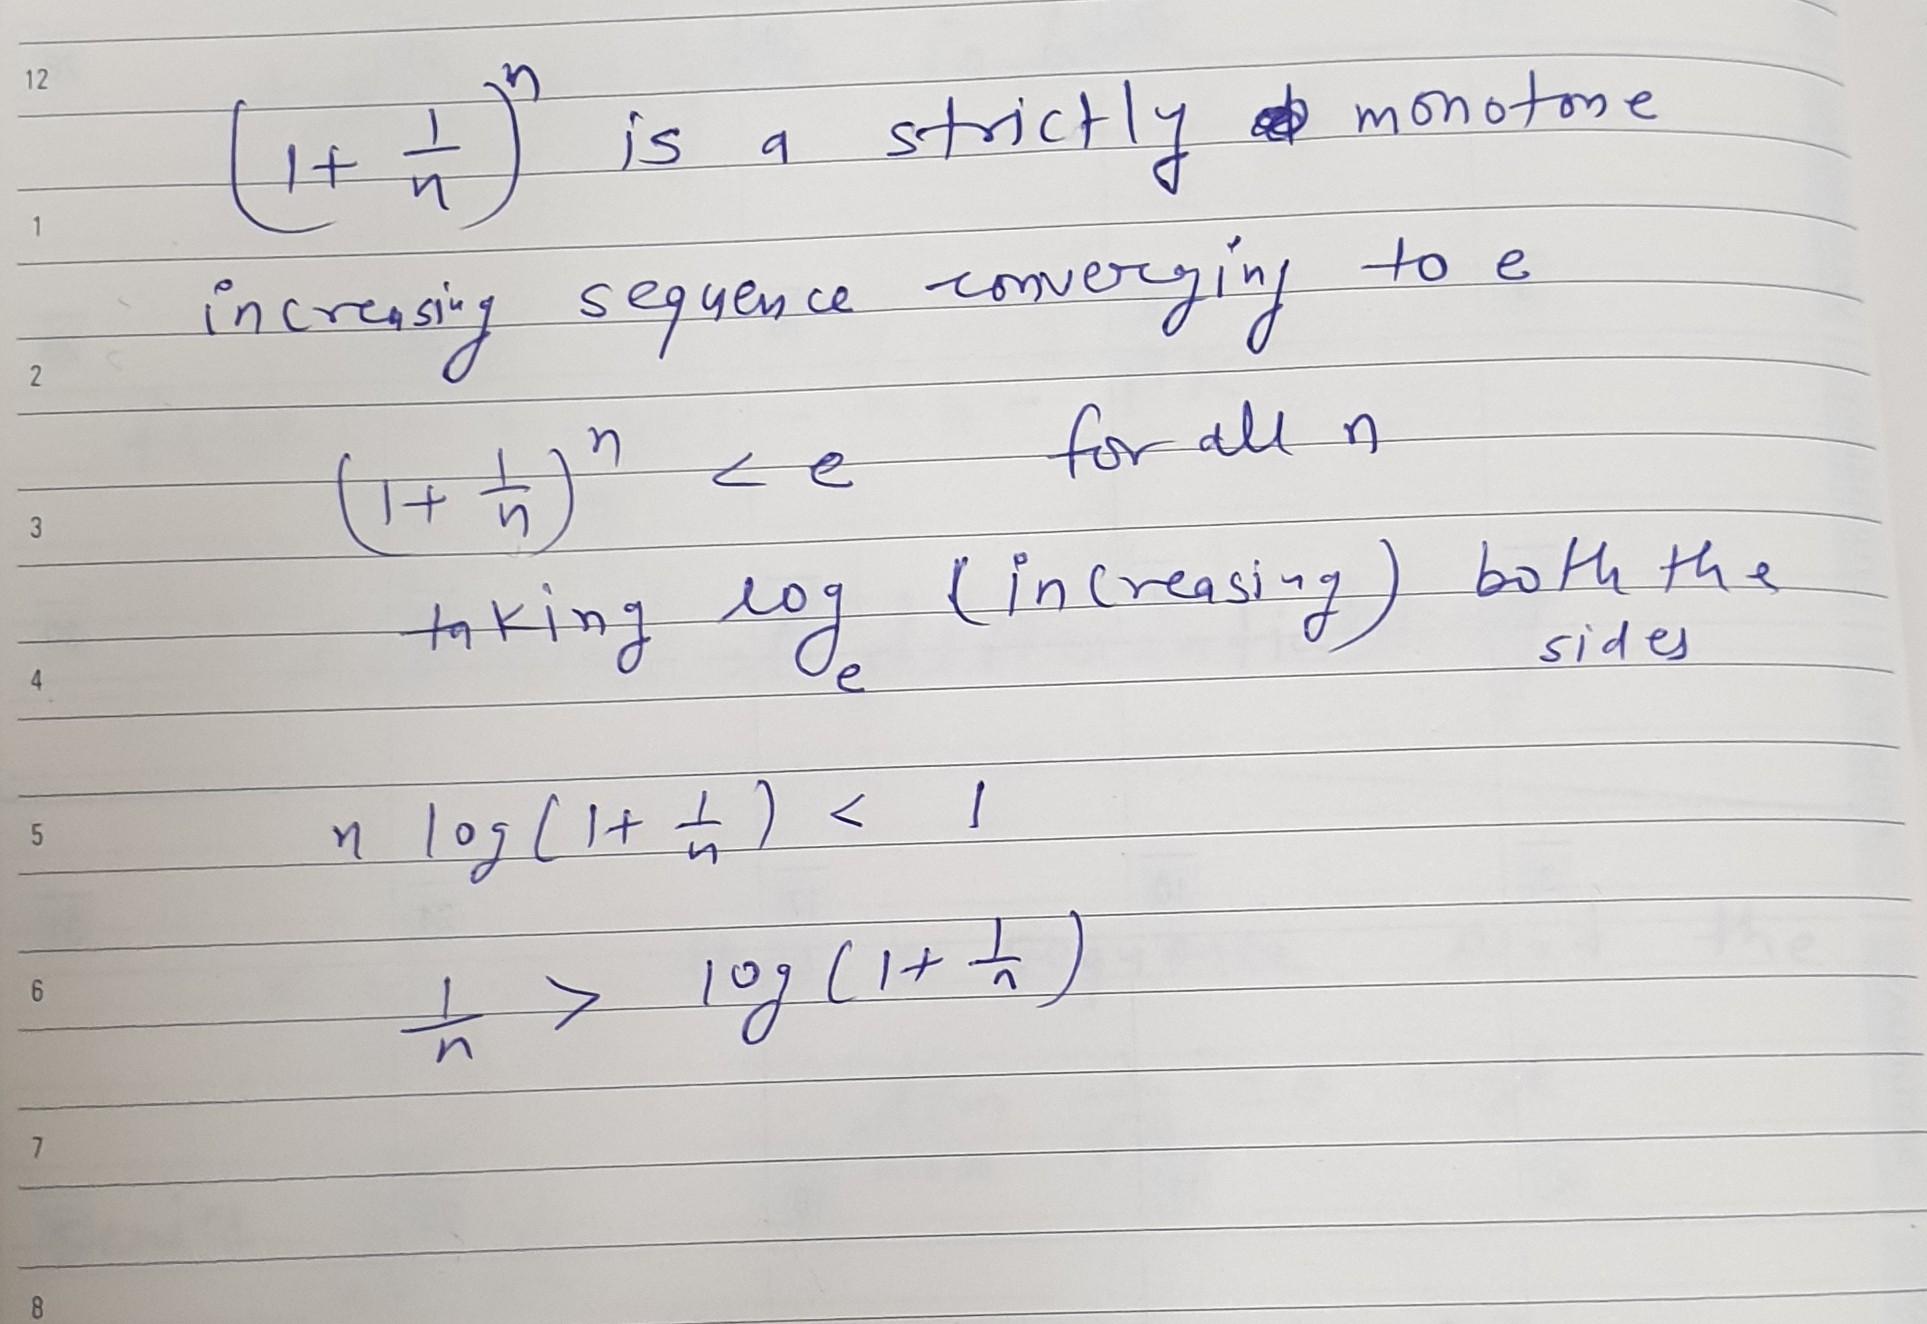 12
(1 + 1/n)^n is a strictly monotone
1
increasing sequence converging to e
2
(1 + 1/n)^n < e for all n
3
taking log_e (increasing) both the
sides
4
5
n log(1 + 1/n) < 1
6
1/n > log(1 + 1/n)
7
8